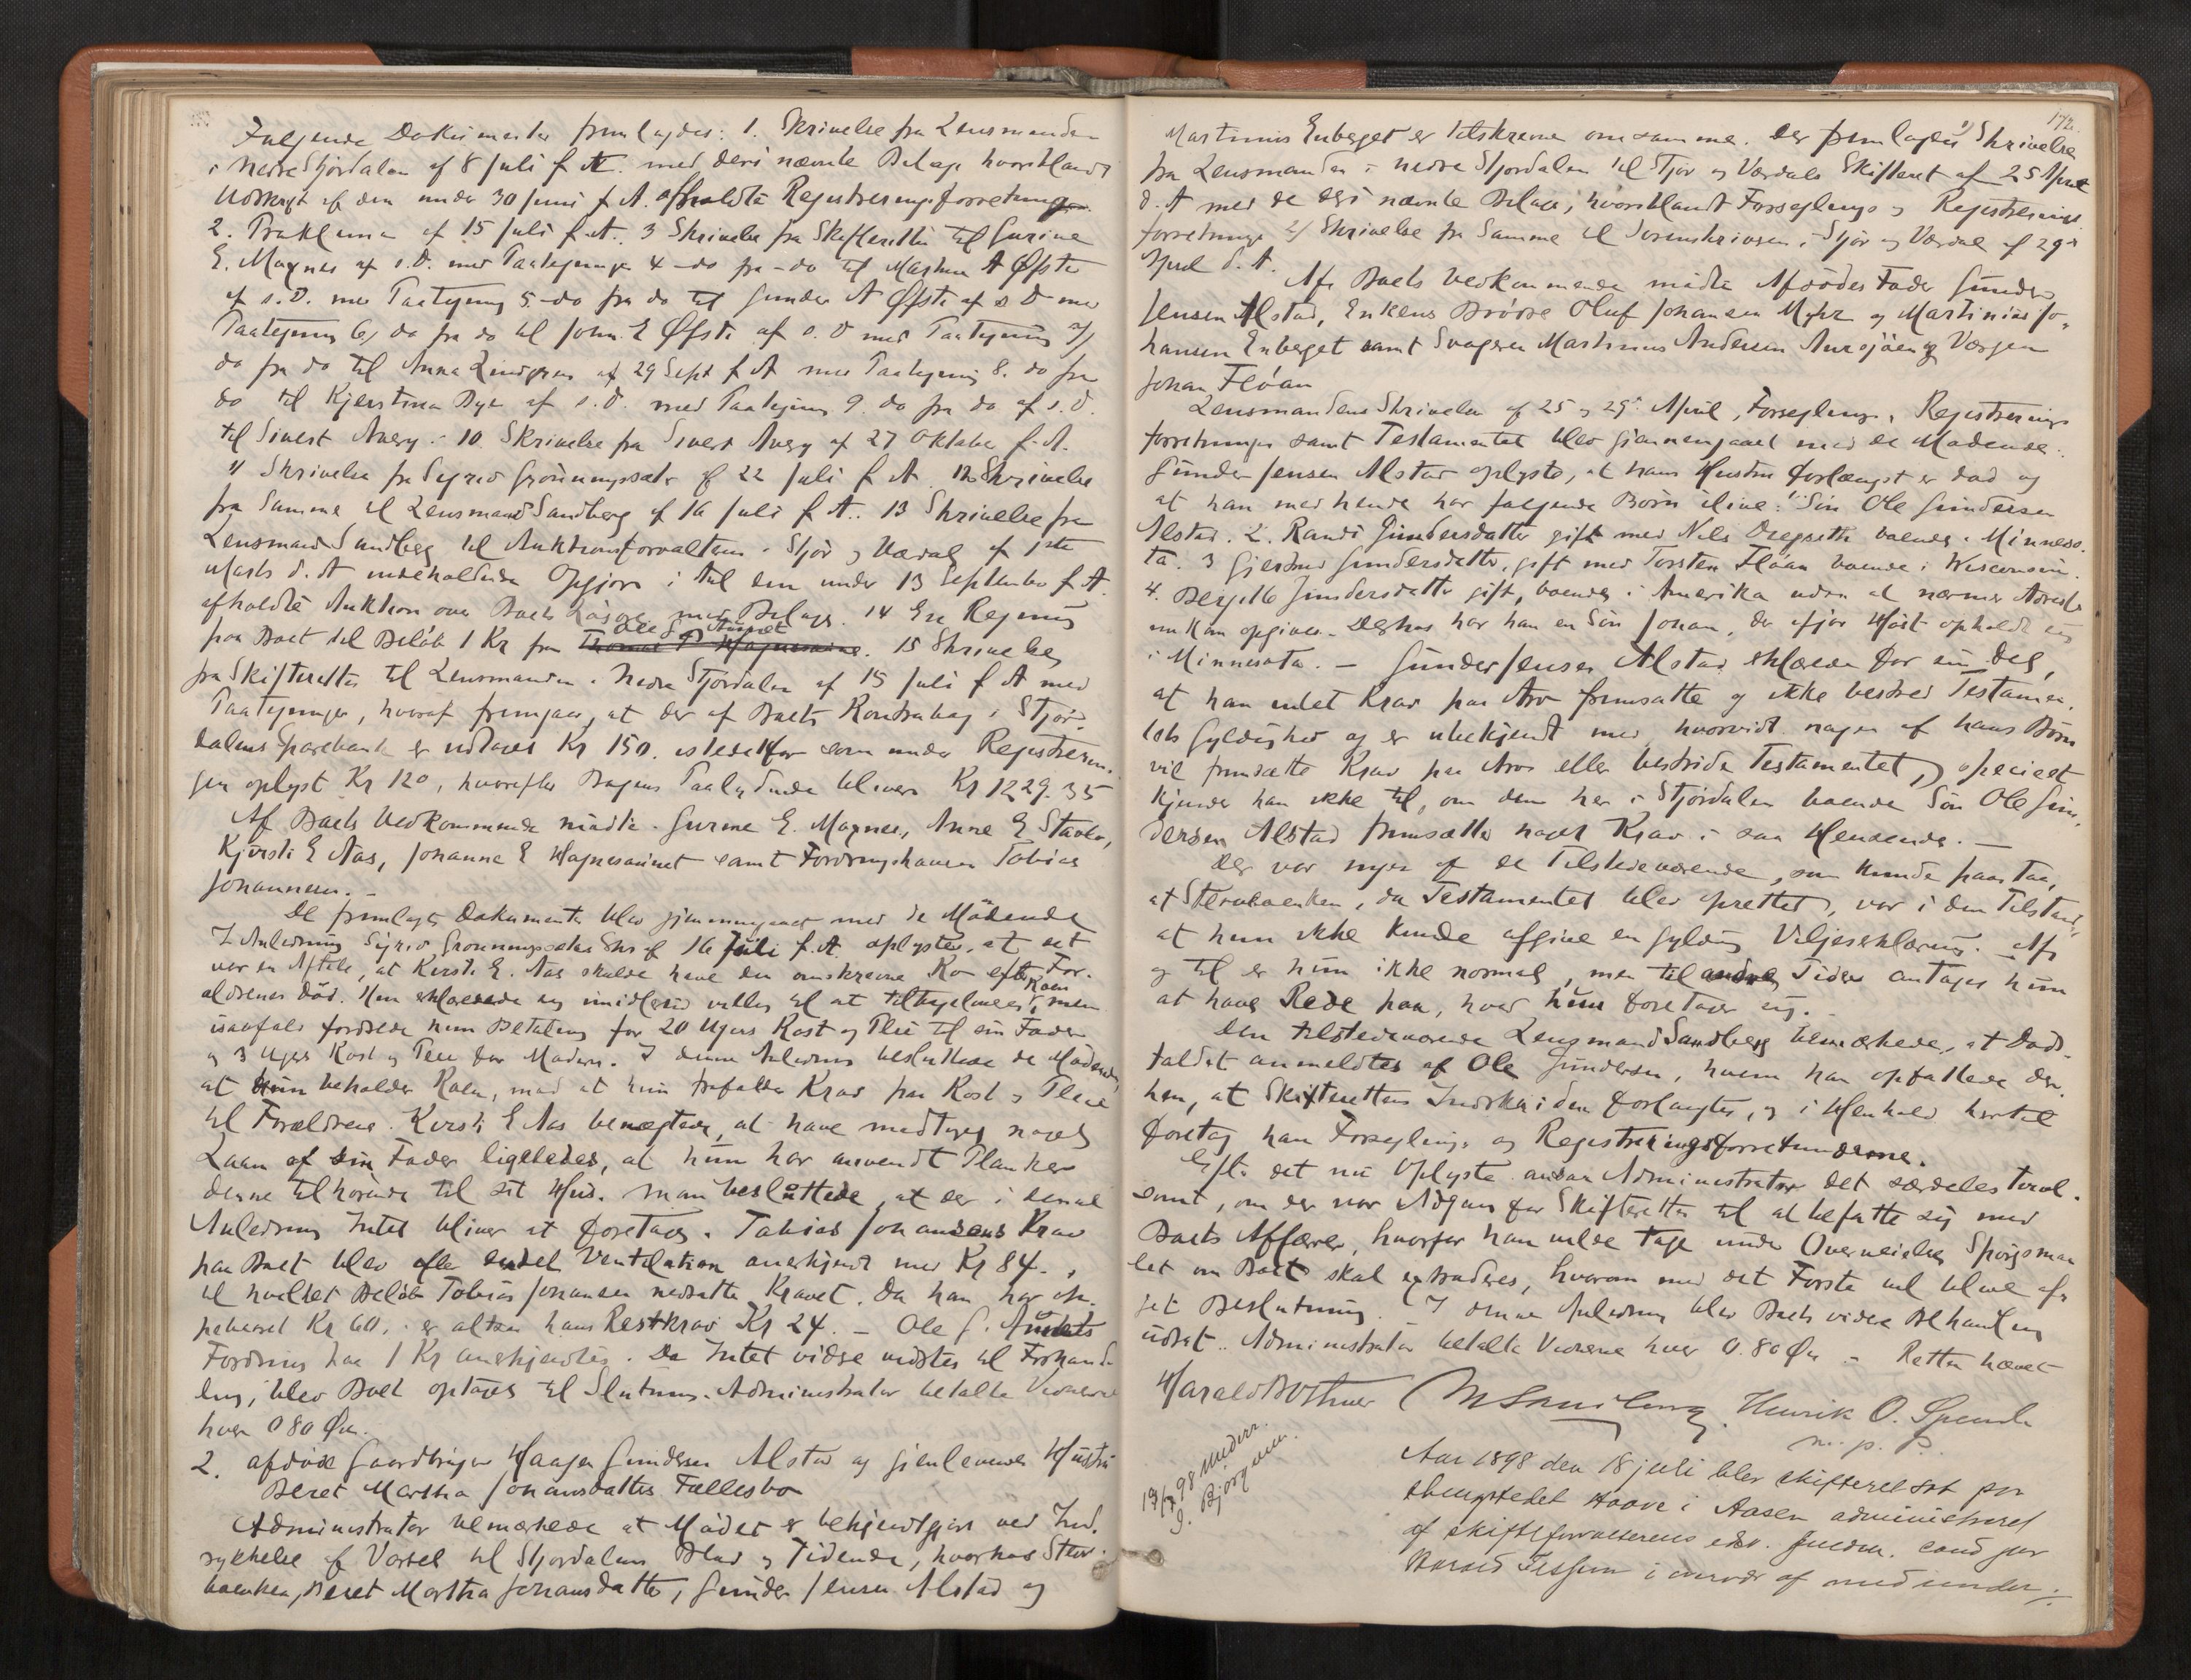 Følgende Dokumenter fremlagdes: 1. Skrivelse fra Lensmanden
i Nedre Stjørdalen af 8 Juli f. A. med deri nævnte Bilage hvoriblandt
Udskrift af den under 30 Juni f. A. afholdte Registreringsforretning
2. Proklama af 15 Juli f. A. 3 Skrivelse fra Skifteretten til Gurine
E. Magnes af s. D. med Paategning 4 - do fra - do til A Øfsti
af s. D. med Paategning 5 - do fra do til Gunder A Øfsti af s D med
Paategning 6) do fra do til John E Øfsti af s. D med Paategning 7)
do fra do til Anna Lindgren af 29 Sept f A med Paategning 8. do fra
do til Kjerstina Bye af s. D. med Paategning 9. do fra do af s. D.
til Sivert Aavry. 10 Skrivelse fra Sivert Aavry af 27 Oktober f. A.
11 Skrivelse fra Sigrid Grønningssæter af 22 Juli f A 12 Skrivelse
fra Samme til Lensmand Sandberg af 16 Juli f. A.. 13 Skrivelse fra
Lensmand Sandberg til Auktionsforvalteren i Stjør og Værdal af 1ste
Marts d. A indeholdende Opgjør i Anl den under 13 September f. A.
afholdte Auktion over Boets Løsøre med Bilage. 14 En Regning
paa Boet til Beløb 1 Kr fra Ole G. Aunet. 15 Skrivelse
fra Skifteretten til Lensmanden i Nedre Stjørdalen af 15 Juli f A med
Paategninger, hvoraf fremgaar, at der af Boets Kontrabog i Stjør-
dalens Sparebank er udtaget Kr 150. istedetfor som under Registrerin-
gen oplyst Kr 120, hvorefter Bogens Paalydende bliver Kr 1229.35
Af Boets Vedkommende mødte. Gurine E. Magnes, Anne E
Kjersti E Aas, Johanna E samt Fordringshaveren Tobias
Johannsen. -
De fremlagte Dokumenter blev gjennemgaaet med de Mødende
I Anledning Sigrid Grønningssæters Skr af 16 Juli f. A. oplystes, at det
var en Aftale, at Kirsti E. Aas skulde have den omskrevne Ko efter For-
ældrenes Død. Hun erklærede sig imidlertid villig til at tilbagelevere Koen, men
isaafald fordrede hun Betaling for 20 Ugers Kost og Pleie til sin Fader
og 3 Ugers Kost og Pleie for Moderen. I denne Anledning besluttede de Mødende,
at hun beholder Koen, mod at hun frafalder Krav paa Kost og Pleie
til Forældrene. Kirsti E Aas benægtede, at have modtaget noget
Laan af sin Fader ligeledes, at hun har anvendt Planker
denne tilhørende til sit Hus. Man besluttede, at der i denne
Anledning Intet bliver at foretage. Tobias Johansens Krav
paa Boet blev efter endel Ventilation anerkjendt med Kr 84.,
til hvilket Beløb Tobias Johansen nedsatte Kravet. Da han har op-
pebaaret Kr 60., er altsaa hans Restkrav Kr 24. - Ole G. Aunets
Fordring paa 1 Kr anerkjendtes. Da Intet videre vidstes til Forhand-
ling, blev Boet optaget til Slutning. Administrator betalte Vidnerne
hver 0 80 Øre.
2. afdøde Gaardbruger Haagen Gundersen Alstad og gjenlevende Hustru
Beret Martha Johansdatters Fællesbo
Administrator bemærkede at Mødet er bekjendtgjort ved Ind-
rykkelse af Varsel til Stjørdalens Blad og Tidende, hvorhos Sterv-
boenken, Beret Martha Johansdatter, Gunder Jensen Alstad og
172.
Martinus Enberget er tilskrevne om samme. Der fremlagdes 1) Skrivelse
fra Lensmanden i nedre Stjørdalen til Stjør og Værdals Skifteret af 25 April
d. A med de deri nævnte Bilage, hvoriblandt Forseglings og Registrerings-
forretninger 2) Skrivelse fra Samme til Sorenskriveren i Stjør og Værdal af 29de
April d. A.
Af Boets Vedkommende mødte Afdødes Fader Gunder
Jensen Alstad, Enkens Brødre Oluf Johansen Myhr og Martinius Jo-
hansen Enberget samt Svogeren Martinus Andersen og Værgen
Johan Flóan
Lensmandens Skrivelse af 25 og 29de April, Forseglings, Registrerings
forretninger samt Testamentet blev gjennemgaaet med de Mødende.
Gunder Jensen Alstad oplyste, at hans Hustru forlængst er død og
at han med hende har følgende Børn ilive: 1. Søn Ole Gundersen
Alstad. 2. Randi Gundersdatter gift med Nels boende i Minneso-
ta. 3 Gjertrud Gundersdatter, gift med Torsten Flóan boende i Wisconsin.
4. Bergitte Gundersdatter gift, boende i Amerika uden at nærmere Adresse
kan opgives. Derhos har han en Søn Johan, der ifjor Høst opholdt sig
i Minnesota. - Gunder Jensen Alstad erklærede for sin Del,
at han intet Krav paa Arv fremsatte og ikke bestred Testamen-
tets Gyldighed og er ubekjendt med, hvorvidt nogen af hans Børn
vil fremsætte Krav paa Arv eller bestride Testamentet, specielt
kjender han ikke til, om den her i Stjørdalen boende Søn Ole Gun-
dersen Alstad fremsætter noget Krav i saa Henseende. -
Der var ingen af de Tilstedeværende, som kunde paastaa,
at Stervboenken, da Testamentet blev oprettet, var i den Tilstand,
at hun ikke kunde afgive en gyldig Viljeserklæring. Af
og til er hun ikke normal, men til andre Tider antages hun
at have Rede paa, hvad hun foretager sig.
Den tilstedeværende Lensmand Sandberg bemærkede, at Døds-
faldet anmeldtes af Ole Gundersen, hvem han opfattede der-
hen, at Skifterettens Indskriden forlangtes, og i Henhold hertil
foretog han Forseglings og Registreringsforretningerne.
Efter det nu Oplyste ansaa Administrator det særdeles tvivl-
somt, om der var Adgang for Skifteretten til at befatte sig med
Boets Affærer, hvorfor han vilde tage under Overveielse Spørgsmaa-
let om Boet skal extraderes, hvorom med det Første vil blive af-
sat Beslutning. I denne Anledning blev Boets videre Behandling
udsat. Administrator betalte Vidnerne hver 0.80 Øre - Retten hævet
Harald Bothner M Sandberg. Henrik O.
m. p. P.
19/7 98
J. Bjørgum.
Aar 1898 den 18 juli blev skifteret sat paa
thingstedet Hoove i Aasen administreret
af skifteforvalterens edsv. fuldm. cand jur
Harald i nærvær af medunder-